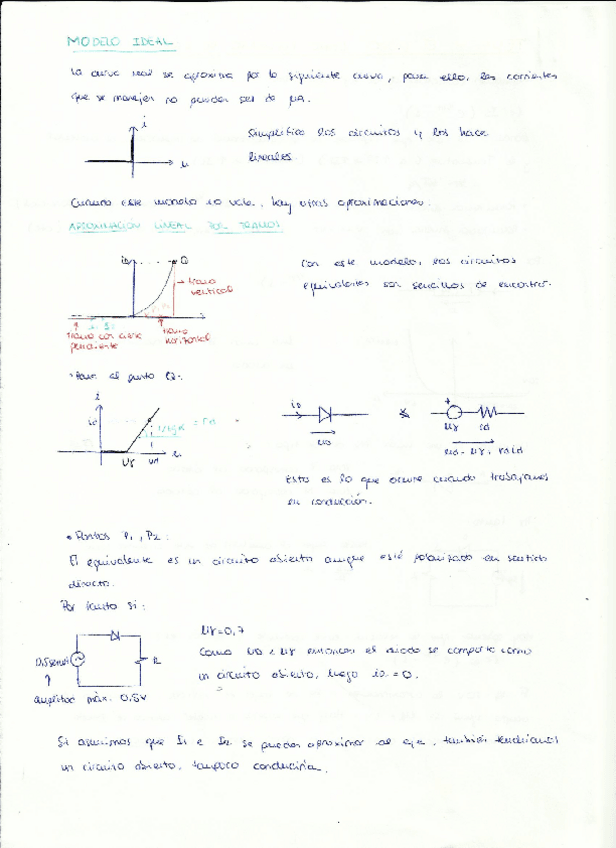 MODELO IDEAL
La curva real se aproxima por la siguiente curva, para ello, las corrientes
que se manejan no pueden ser de µA.
i
u
Simplifica los circuitos y los hace
lineales
Cuando este modelo no vale, hay otras aproximaciones.
APROXIMACIÓN LINEAL POR TRAMOS
iD
Q
tramo
vertical
Con este modelo, los circuitos
equivalentes son sencillos de encontrar.
tramo con cierta
pendiente
tramo
horizontal
Para el punto Q:
i
iD
uγ
ud
u
iD
uD
uγ
rd
ud = uγ + rd id
Esto es lo que ocurre cuando trabajamos
en conducción.
Puntos P1, P2:
El equivalente es un circuito abierto aunque esté polarizado en sentido
directo.
Por tanto si:
uγ=0,7
Como uD < uγ entonces el diodo se comporta como
un circuito abierto, luego iD = 0.
R
amplitud máx. 0.5V
Si asumimos que I1 e I2 se pueden aproximar al eje, también tendríamos
un circuito abierto, tampoco conduciría.